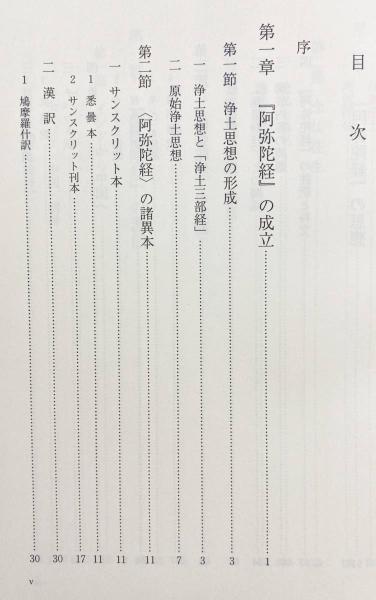 目次
序
第一章 『阿弥陀経』の成立……1
第一節 浄土思想の形成……3
一 浄土思想と「浄土三部経」……3
二 原始浄土思想……7
第二節 〈阿弥陀経〉の諸異本……11
一 サンスクリット本……11
1 悉曇本……11
2 サンスクリット刊本……17
二 漢訳……30
1 鳩摩羅什訳……30
v